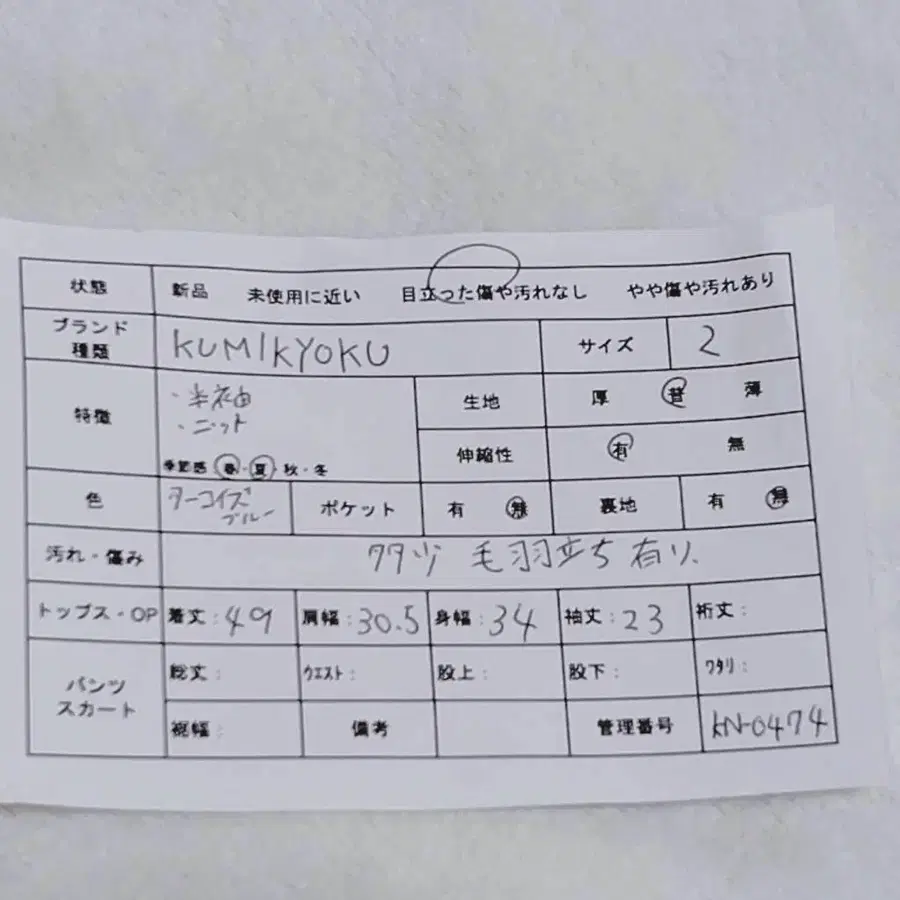 状態 新品 未使用に近い 目立った傷や汚れなし やや傷や汚れあり
ブランド
種類 KUMIKYOKU サイズ 2
特徴 ・半袖 生地 厚 普 薄
・ニット
季節感 春・夏・秋・冬 伸縮性 有 無
色 ターコイズ
ブルー ポケット 有 無 裏地 有 無
汚れ・傷み 多少 毛羽立ち有り、
トップス・OP 着丈:49 肩幅:30.5 身幅:34 袖丈:23 裄丈:
パンツ
スカート 総丈: ウエスト: 股上: 股下: ワタリ:
裾幅: 備考 管理番号 KN-0474